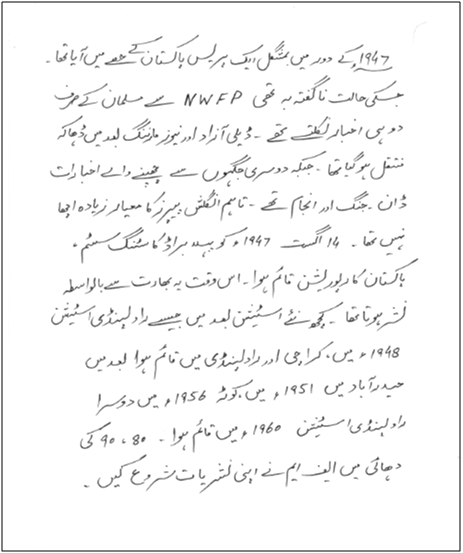 1947ء کے دور میں بمشکل ایک پریس پاکستان کے حصے میں آیا تھا۔
جسکی حالت ناگفتہ بہ تھی NWFP سے مسلمان کے صرف
دو ہی اخبار نکلتے تھے۔ ڈیلی آزاد اور نیوز مارننگ بعد میں ڈھاکہ
منتقل ہو گیا تھا۔ جبکہ دوسری جگہوں سے چھپنے والے اخبارات
ڈان۔ جنگ اور انجام تھے۔ تاہم انگلش پیپرز کا معیار زیادہ اچھا
نہیں تھا۔ 14 اگست 1947ء کو پہلا براڈ کاسٹنگ سسٹم۔
پاکستان کارپوریشن قائم ہوا۔ اس وقت یہ بھارت سے بالواسطہ
نشر ہوتا تھا۔ کچھ نئے اسٹیشن بعد میں جیسے راولپنڈی اسٹیشن
1948ء میں، کراچی اور راولپنڈی میں قائم ہوا بعد میں
حیدرآباد میں 1951ء میں، کوئٹہ 1956ء میں دوسرا
راولپنڈی اسٹیشن 1960ء میں قائم ہوا۔ 80، 90 کی
دھائی میں ایف ایم نے اپنی نشریات شروع کیں۔